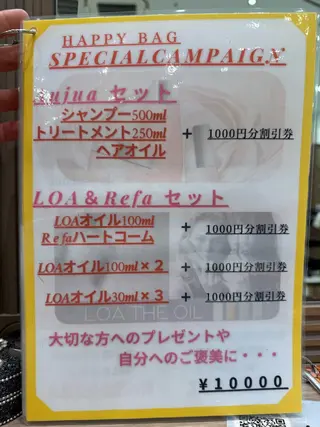 HAPPY BAG
SPECIALCAMPAIGN
Lujua セット
シャンプー500ml
トリートメント250ml + 1000円分割引券
ヘアオイル
LOA&Refa セット
LOAオイル100ml + 1000円分割引券
Refaハートコーム
LOAオイル100ml×2 + 1000円分割引券
LOAオイル30ml×3 + 1000円分割引券
LOA THE OIL
大切な方へのプレゼントや
自分へのご褒美に・・・
¥10000